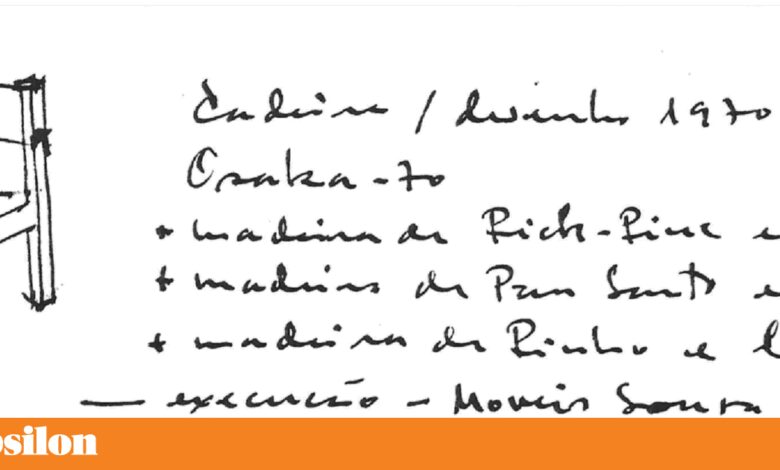 Cadeira / desenho 1970
Osaka-70
+ madeira de Rich-Pine e
+ madeira de Pau Santo e
+ madeira de Pinho e l
— execução - Moveis Sousa
psilon